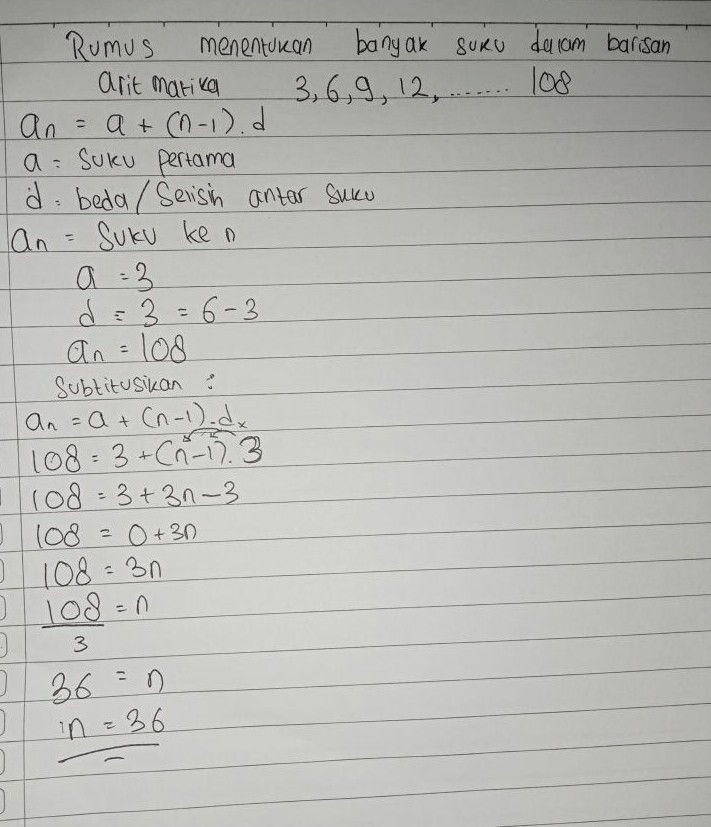 Rumus menentukan banyak suku dalam barisan
aritmatika 3, 6, 9, 12, ....... 108
an = a + (n-1). d
a = suku pertama
d = beda/Selisih antar suku
an = Suku ke n
a = 3
d = 3 = 6-3
an = 108
Subtitusikan :
an = a + (n-1).d
108 = 3 + (n-1). 3
108 = 3 + 3n - 3
108 = 0 + 3n
108 = 3n
108 = n
3
36 = n
n = 36